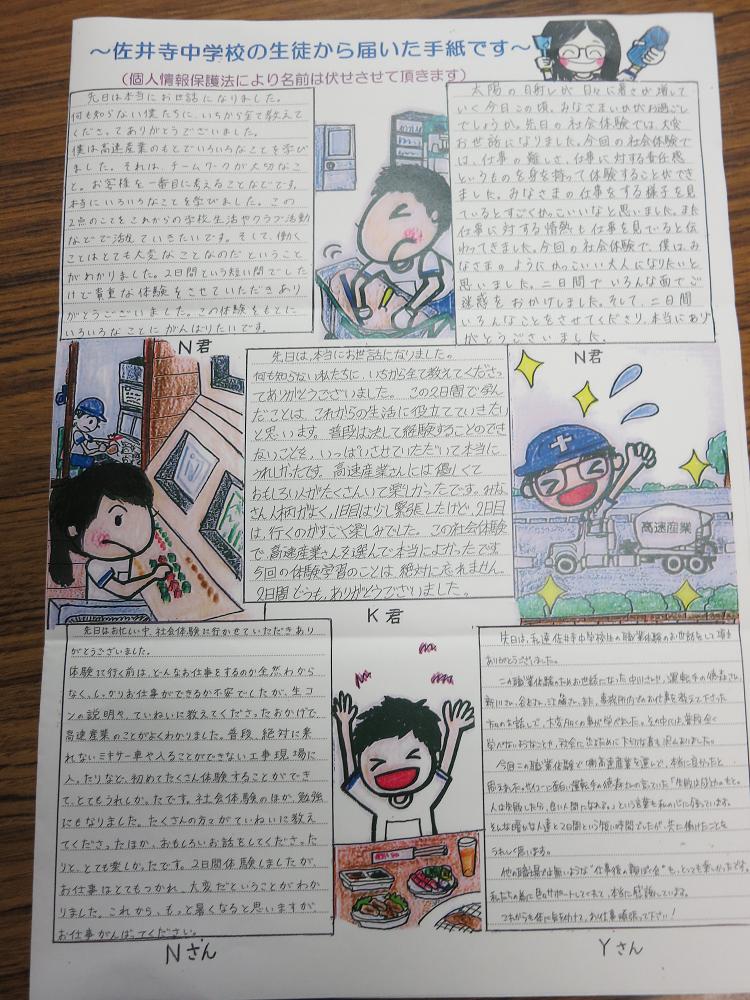 ～佐井寺中学校の生徒から届いた手紙です～
（個人情報保護法により名前は伏せさせて頂きます）
先日は本当にお世話になりました。
何も知らない僕たちに、いちから全て教えて
くださってありがとうございました。
僕は高速産業のもとでいろいろなことを学び
ました。それは、チームワークが大切なこ
と。お客様を一番目に考えることなどです。
本当にいろいろなことを学びました。この
2点のことをこれからの学校生活やクラブ活動
などで活かしていきたいです。そして、働く
ことはとても大変なことなのだということ
がわかりました。2日間という短い間でした
けど貴重な体験をさせていただきあり
がとうございました。この体験をもとに
いろいろなことにがんばりたいです。
N君
太陽の日射しが日々に暑さが増して
いく今日この頃、みなさまいかがお過ごし
でしょうか。先日の社会体験では、大変
お世話になりました。今回の社会体験で
は、仕事の難しさ、仕事に対する責任感
というものを身を持って体験することができ
ました。みなさまの仕事をする様子を見
ているとすごくかっこいいなと思いました。また
仕事に対する情熱も仕事を見ていると伝
わってきました。今回の社会体験で、僕はみ
なさまのようにかっこいい大人になりたいと
思いました。二日間でいろんな面でご
迷惑をおかけしました。そして、二日間
いろんなことをさせてくださり、本当にあり
がとうございました。
N君
先日は、本当にお世話になりました。
何も知らない私たちに、いちから全て教えてくださっ
てありがとうございました。この2日間で学ん
だことは、これからの生活に役立てていきたい
と思います。普段は決して経験することのでき
ないことを、いっぱいさせていただいて本当に
うれしかったです。高速産業さんには優しくて
おもしろい人がたくさんいて楽しかったです。みな
さん人柄が良く、1日目は少し緊張したけど、2日目
は、行くのがすごく楽しみでした。この社会体験
で、高速産業さんを選んで本当によかったです
今回の体験学習のことは、絶対に忘れません。
2日間どうも、ありがとうございました。
K君
高速産業
先日はお忙しい中、社会体験に行かせていただきあり
がとうございました。
体験に行く前は、どんなお仕事をするのか全然わから
なく、しっかりお仕事ができるか不安でしたが、生コ
ンの説明や、ていねいに教えてくださったおかげで
高速産業のことがよくわかりました。普段、絶対に乗
れないミキサー車や入ることができない工事現場に
入ったりなど、初めてたくさん体験することができ
て、とてもうれしかったです。社会体験のほか、勉強
にもなりました。たくさんの方々がていねいに教え
てくださったほか、おもしろいお話をしてくださった
りと、とても楽しかったです。2日間体験しましたが、
お仕事はとてもつかれ、大変だということがわか
りました。これから、もっと暑くなると思いますが、
お仕事がんばってください。
Nさん
先日は、私達佐井寺中学校生の職業体験のお世話をして頂き
ありがとうございました。
この職業体験のためお世話になった中川さんや、運転手の徳森さん、
方のお話しで、大変沢山の事が学べました。その中には普段全く
今回この職業体験で(株)高速産業を選んで、本当に良かったと
人は失敗したら、良い人間になれる。」という言葉も私の心に残っています。
そんな暖かな人達と2日間という短い時間でしたが、共に働けたことを
うれしく思います。
他の職場では無いような"仕事後の親ぼく会"も、とっても楽しかったです。
私たちの為に色々サポートしてくれて、本当に感謝しています。
これからも体に気を付けて、お仕事頑張って下さい！
Yさん